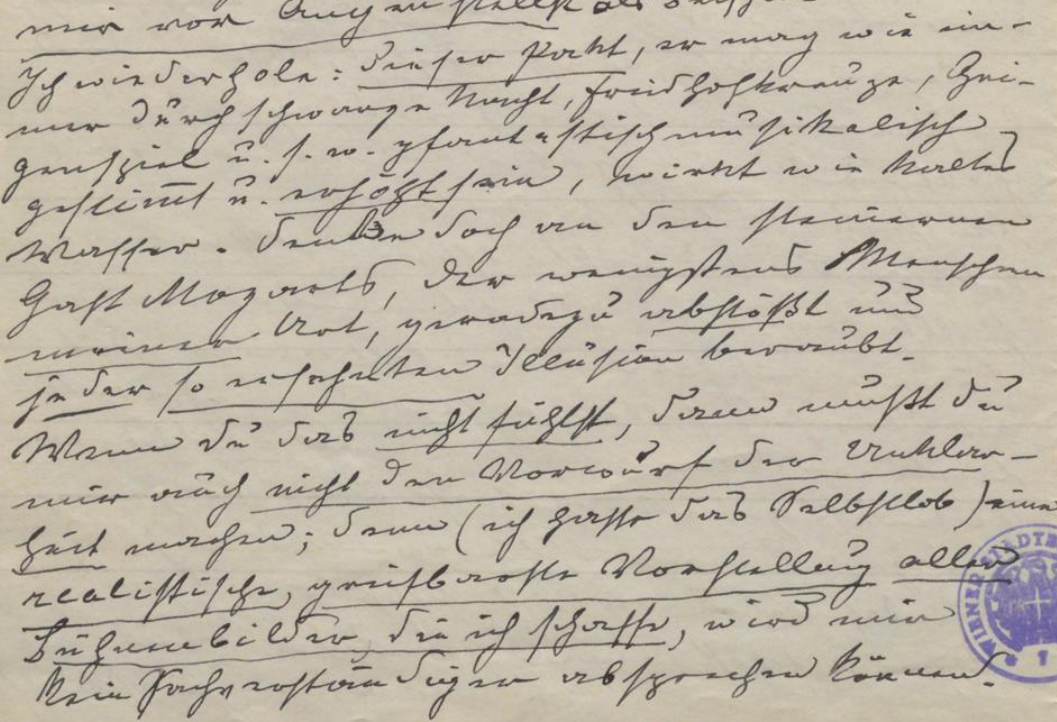 mir vor Augen stellst als
Ich wiederhole: Dieser Pakt, er mag wie im-
mer durch schwarze Nacht, Friedhofkreuze, Gei-
genspiel u. s. w. phantastisch musikalisch
gestimmt u. erhöht sein, wirkt wie kaltes
Wasser. Denke doch an den steinernen
Gast Mozarts, der wenigstens Menschen
meiner Art, geradezu abstößt und
jeder so ersehnten Illusion beraubt.
Wenn du das nicht fühlst, dann mußt du
mir auch nicht den Vorwurf der Unklar-
heit machen; denn (ich hasse das Selbstlob) eine
realistische, greifbarste Vorstellung aller
Bühnenbilder, die ich schaffe, wird mir
kein Fachverständiger absprechen können.
WIENER STADTB
1